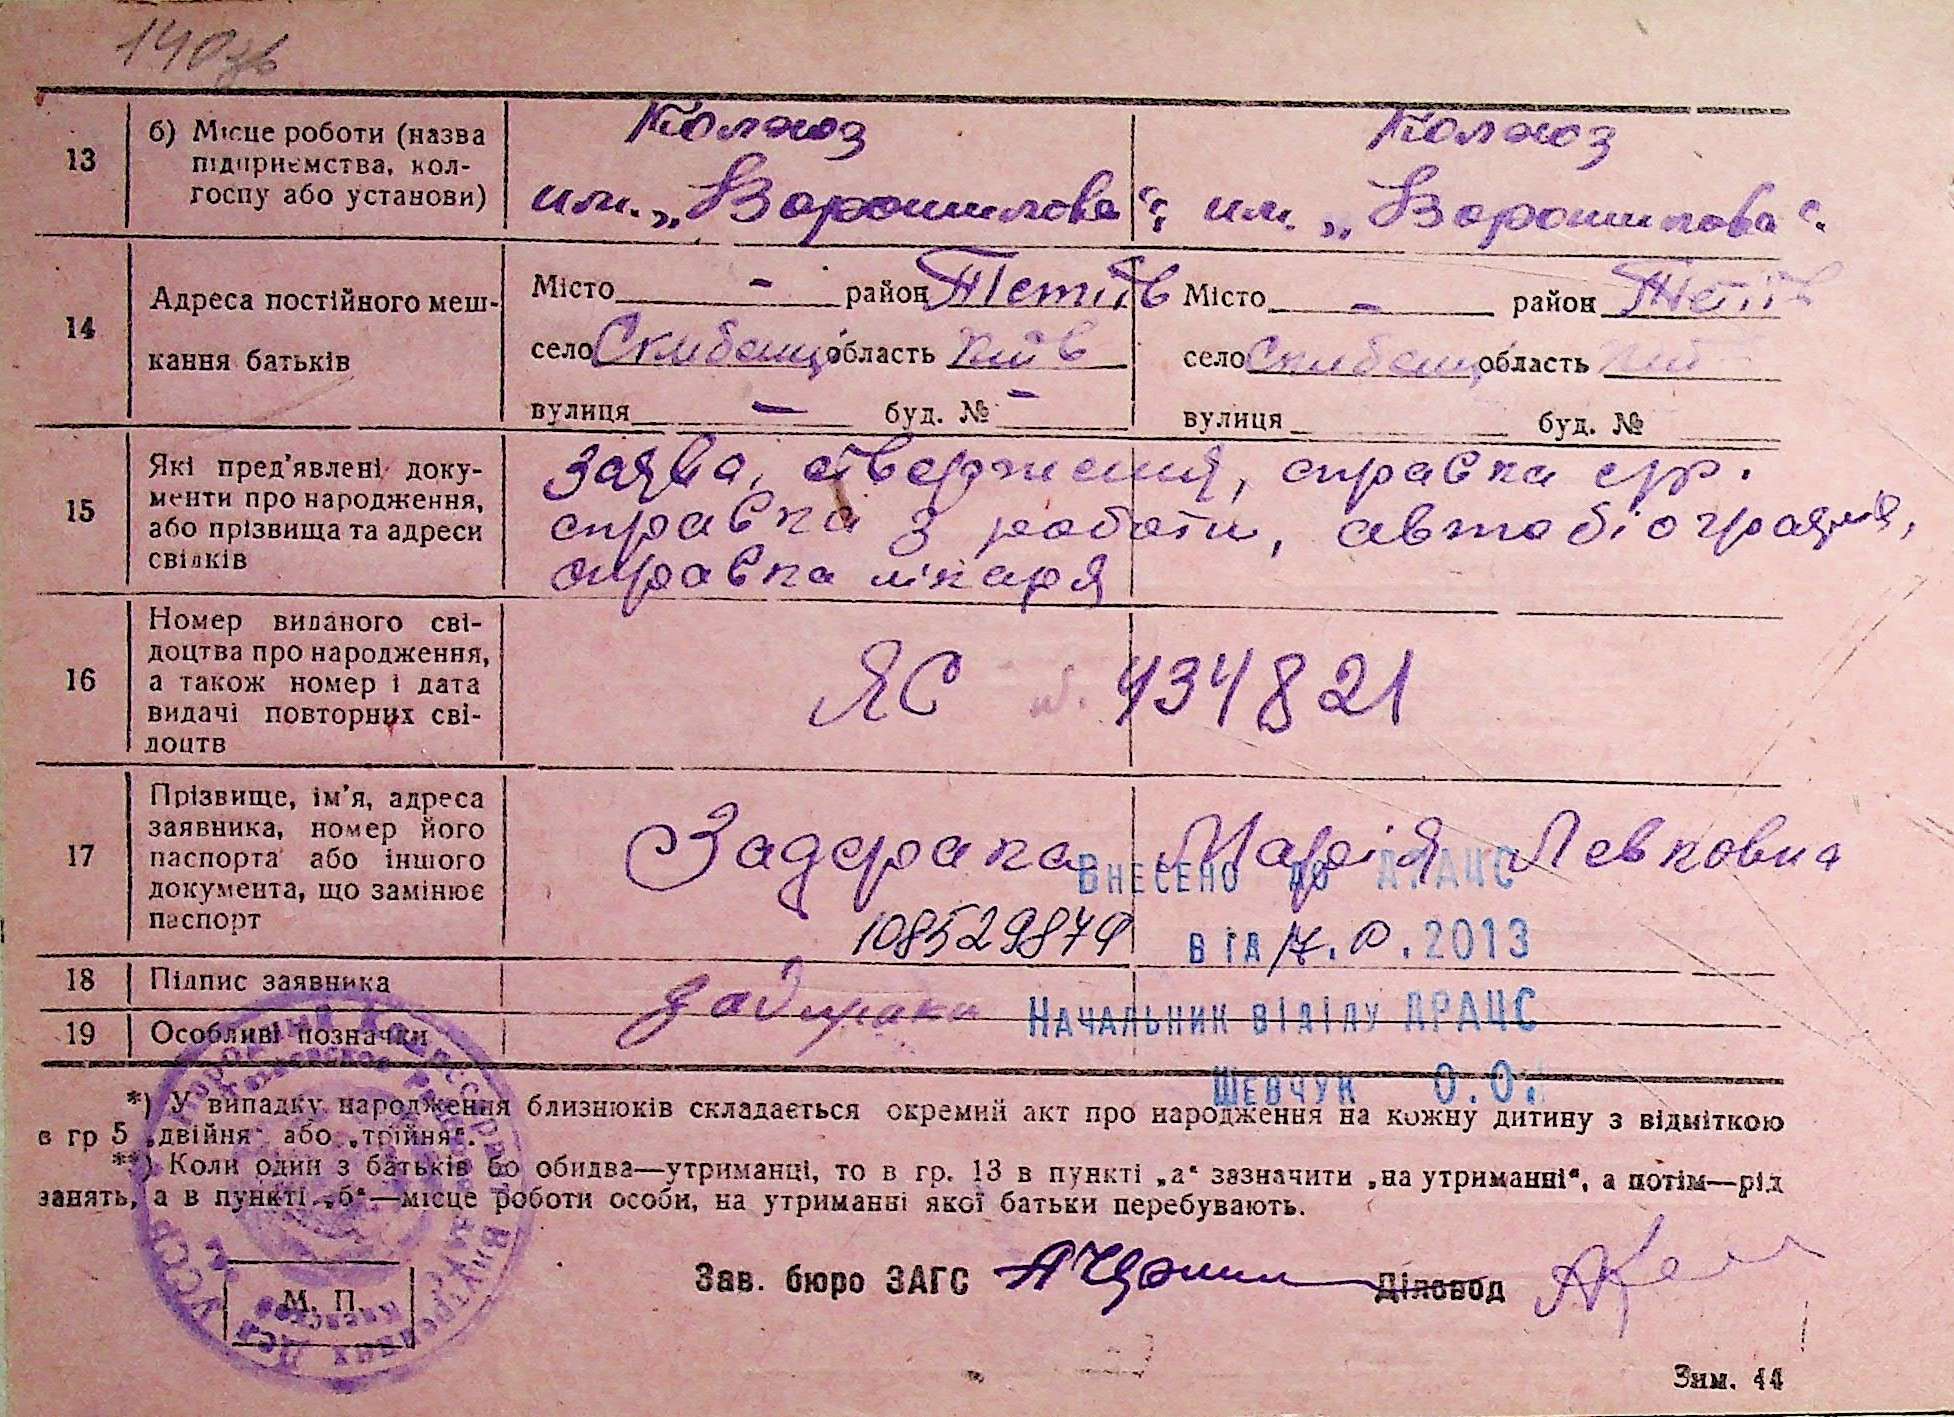 140зв
13
б) Місце роботи (назва
підприємства, кол-
госпу або установи)
Колхоз
им. „Ворошилова“;
Колхоз
им. „Ворошилова“.
14
Адреса постійного меш-
кання батьків
Місто - район Тетіїв
село Скибенці область Київ
вулиця - буд. № -
Місто - район Тетіїв
село Скибенці область Киї
вулиця буд. №
15
Які пред'явлені доку-
менти про народження,
або прізвища та адреси
свідків
Заява, ствердження, справка
справка з роботи, автобіографія,
справка лікаря
16
Номер виданого сві-
доцтва про народження,
а також номер і дата
видачі повторних сві-
доцтв
ЯС 434821
17
Прізвище, ім'я, адреса
заявника, номер його
паспорта або іншого
документа, що замінює
паспорт
Задерака Марія Левковна
1085298
Внесено до ДРАЦС
від 2013
18
Підпис заявника
Задирака
Начальник відділу ДРАЦС
19
Особливі позначки
Шевчук О.О.
*) У випадку народження близнюків складається окремий акт про народження на кожну дитину з відміткою
в гр 5 „двійня“ або „трійня“.
**) Коли один з батьків бо обидва—утриманці, то в гр. 13 в пункті „а“ зазначити „на утриманні“, а потім—рід
занять, а в пункті „б“—місце роботи особи, на утриманні якої батьки перебувають.
Зав. бюро ЗАГС
Діловод
М. П.
Зим. 44